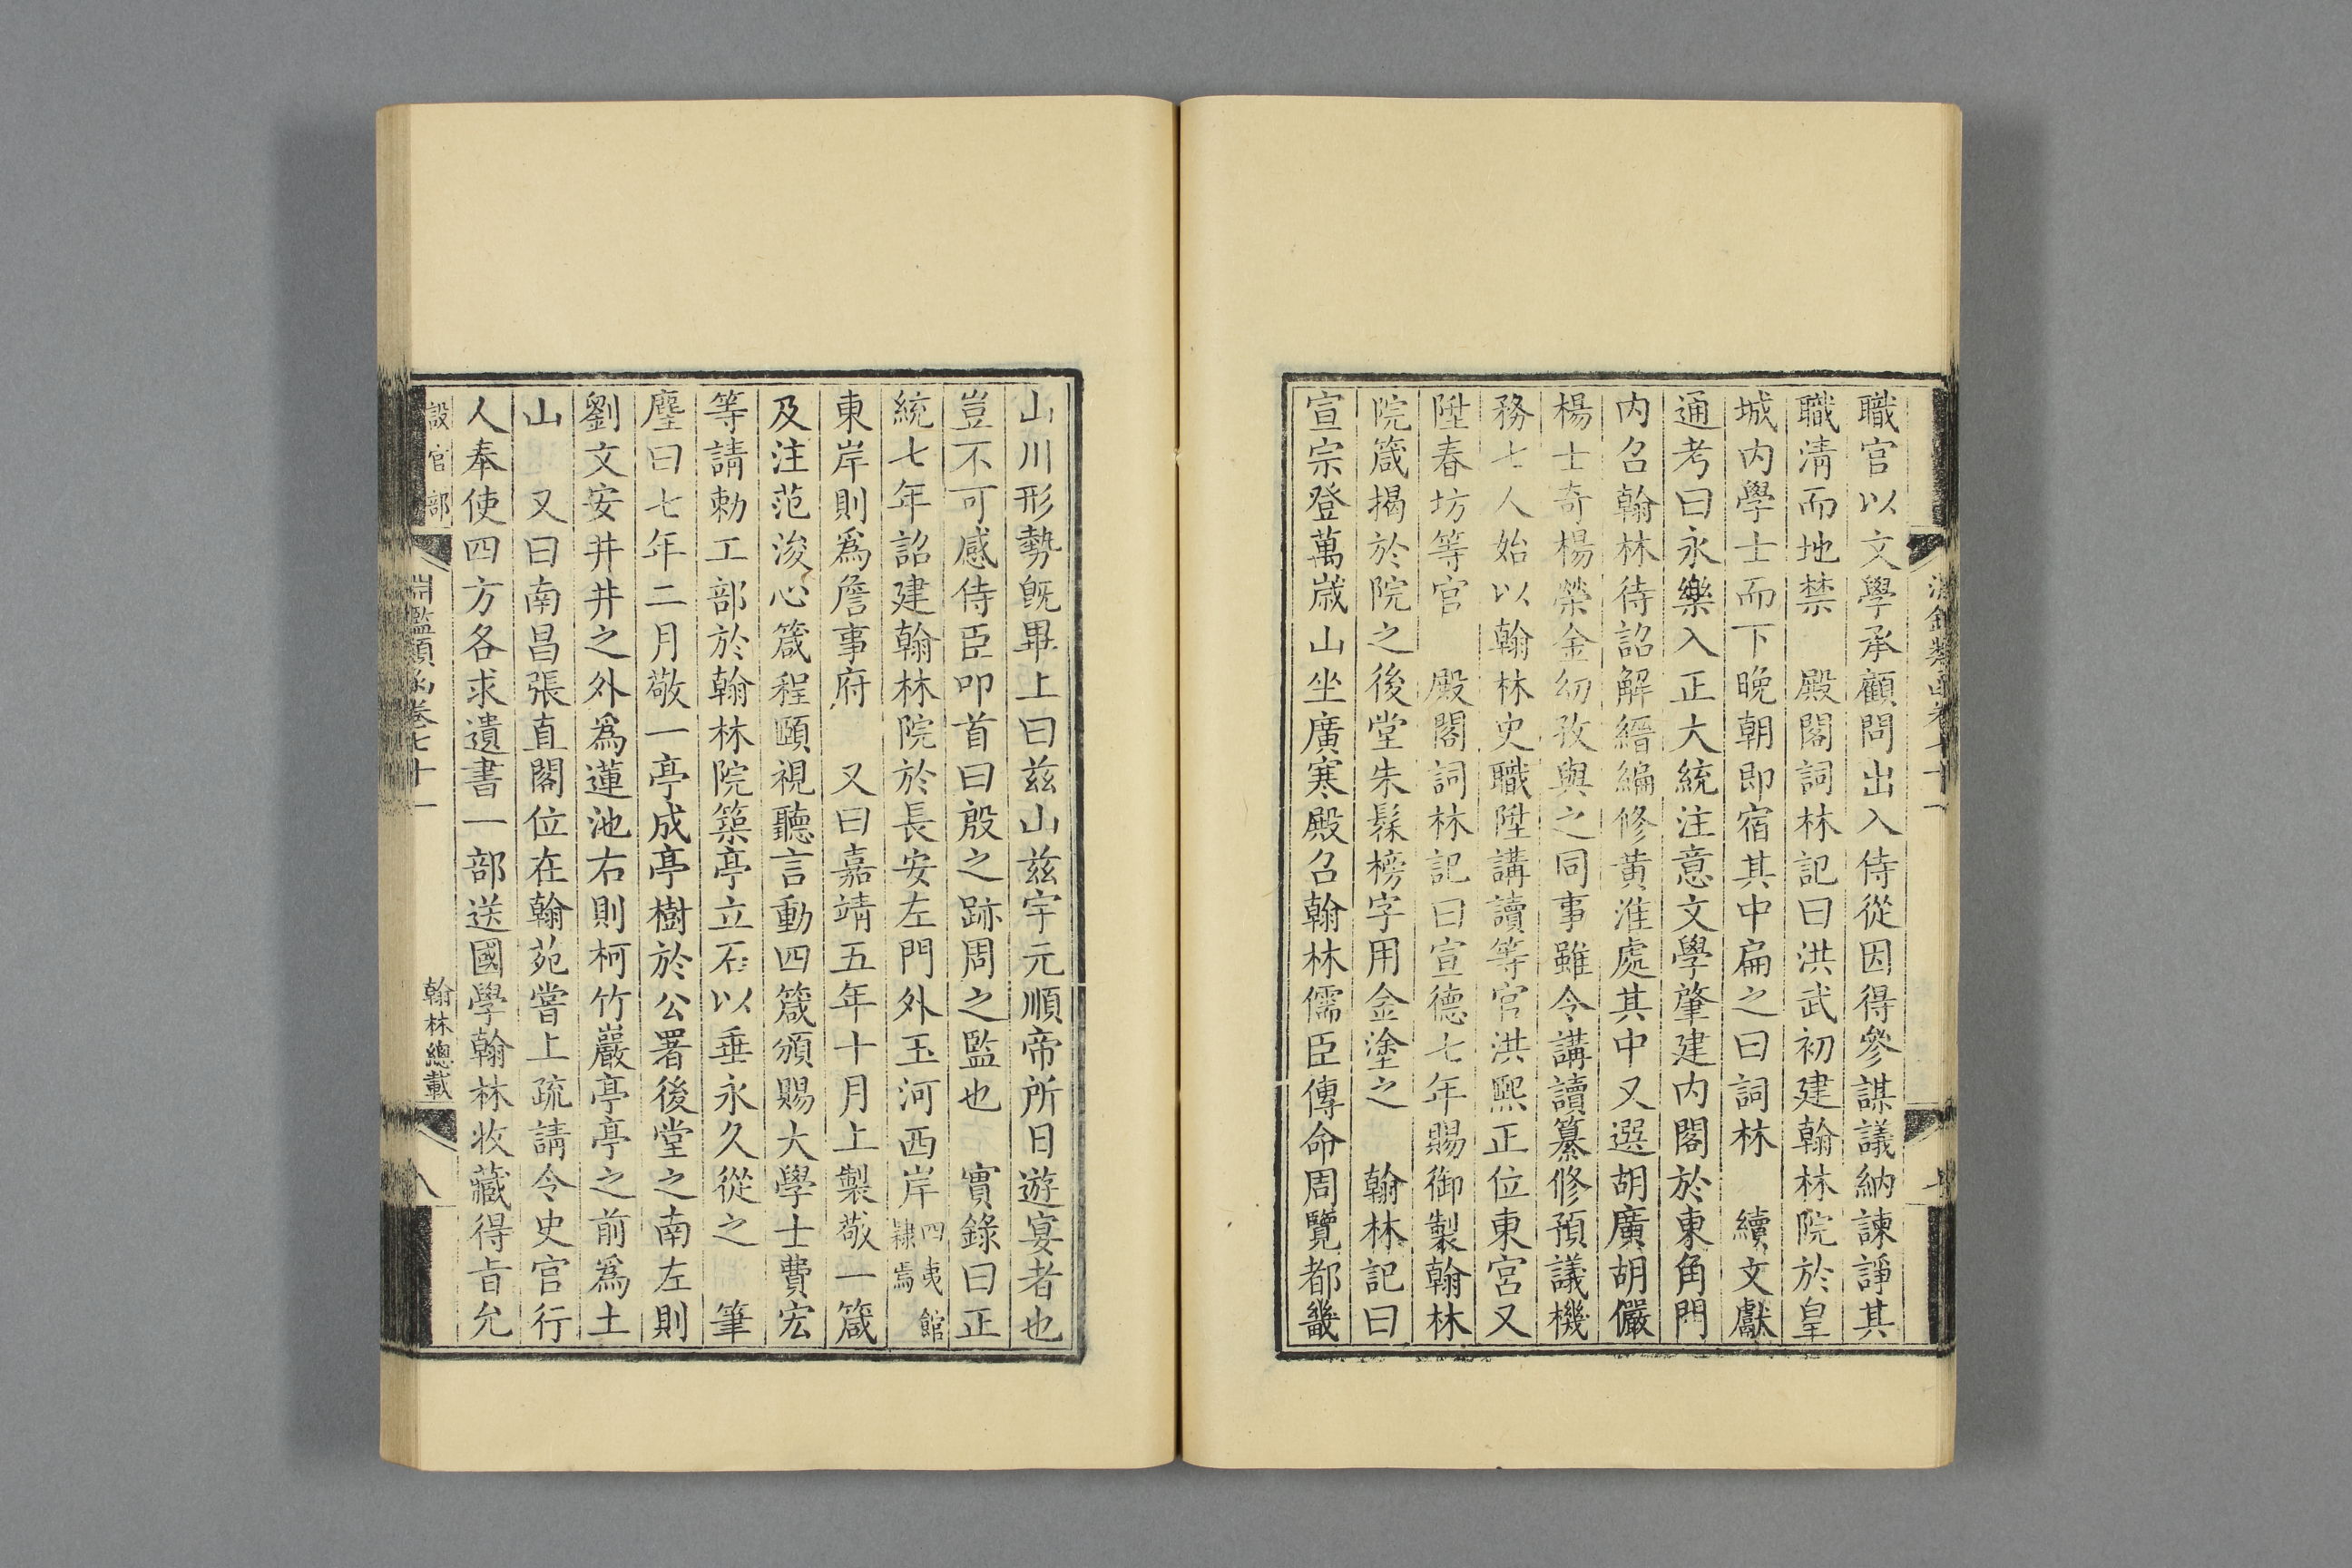 職官以文學承顧問出入侍從因得參謀議納諫諍其
職淸而地禁　殿閣詞林記曰洪武初建翰林院於皇
城内學士而下晚朝即宿其中扁之曰詞林　續文獻
通考曰永樂入正大統注意文學肇建内閣於東角門
内召翰林待詔解縉編修黄淮處其中又選胡廣胡儼
楊士奇楊榮金幼孜與之同事雖令講讀纂修預議機
務七人始以翰林史職陞講讀等官洪熙正位東宮又
陞春坊等官　殿閣詞林記曰宣德七年賜御製翰林
院箴揭於院之後堂朱髹榜字用金塗之　翰林記曰
宣宗登萬歲山坐廣寒殿召翰林儒臣傳命周覽都畿
山川形勢旣畢上曰兹山兹宇元順帝所日遊宴者也
豈不可感侍臣叩首曰殷之跡周之監也　實錄曰正
統七年詔建翰林院於長安左門外玉河西岸四夷館隸焉
東岸則爲詹事府　又曰嘉靖五年十月上製敬一箴
及注范浚心箴程頤視聽言動四箴頒賜大學士費宏
等請勅工部於翰林院築亭立石以垂永久從之　筆
麈曰七年二月敬一亭成亭樹於公署後堂之南左則
劉文安井井之外爲蓮池右則柯竹巖亭亭之前爲土
山　又曰南昌張直閣位在翰苑嘗上疏請令史官行
人奉使四方各求遺書一部送國學翰林收藏得旨允
設官部
淵鑑類函卷七十一
翰林總載
八